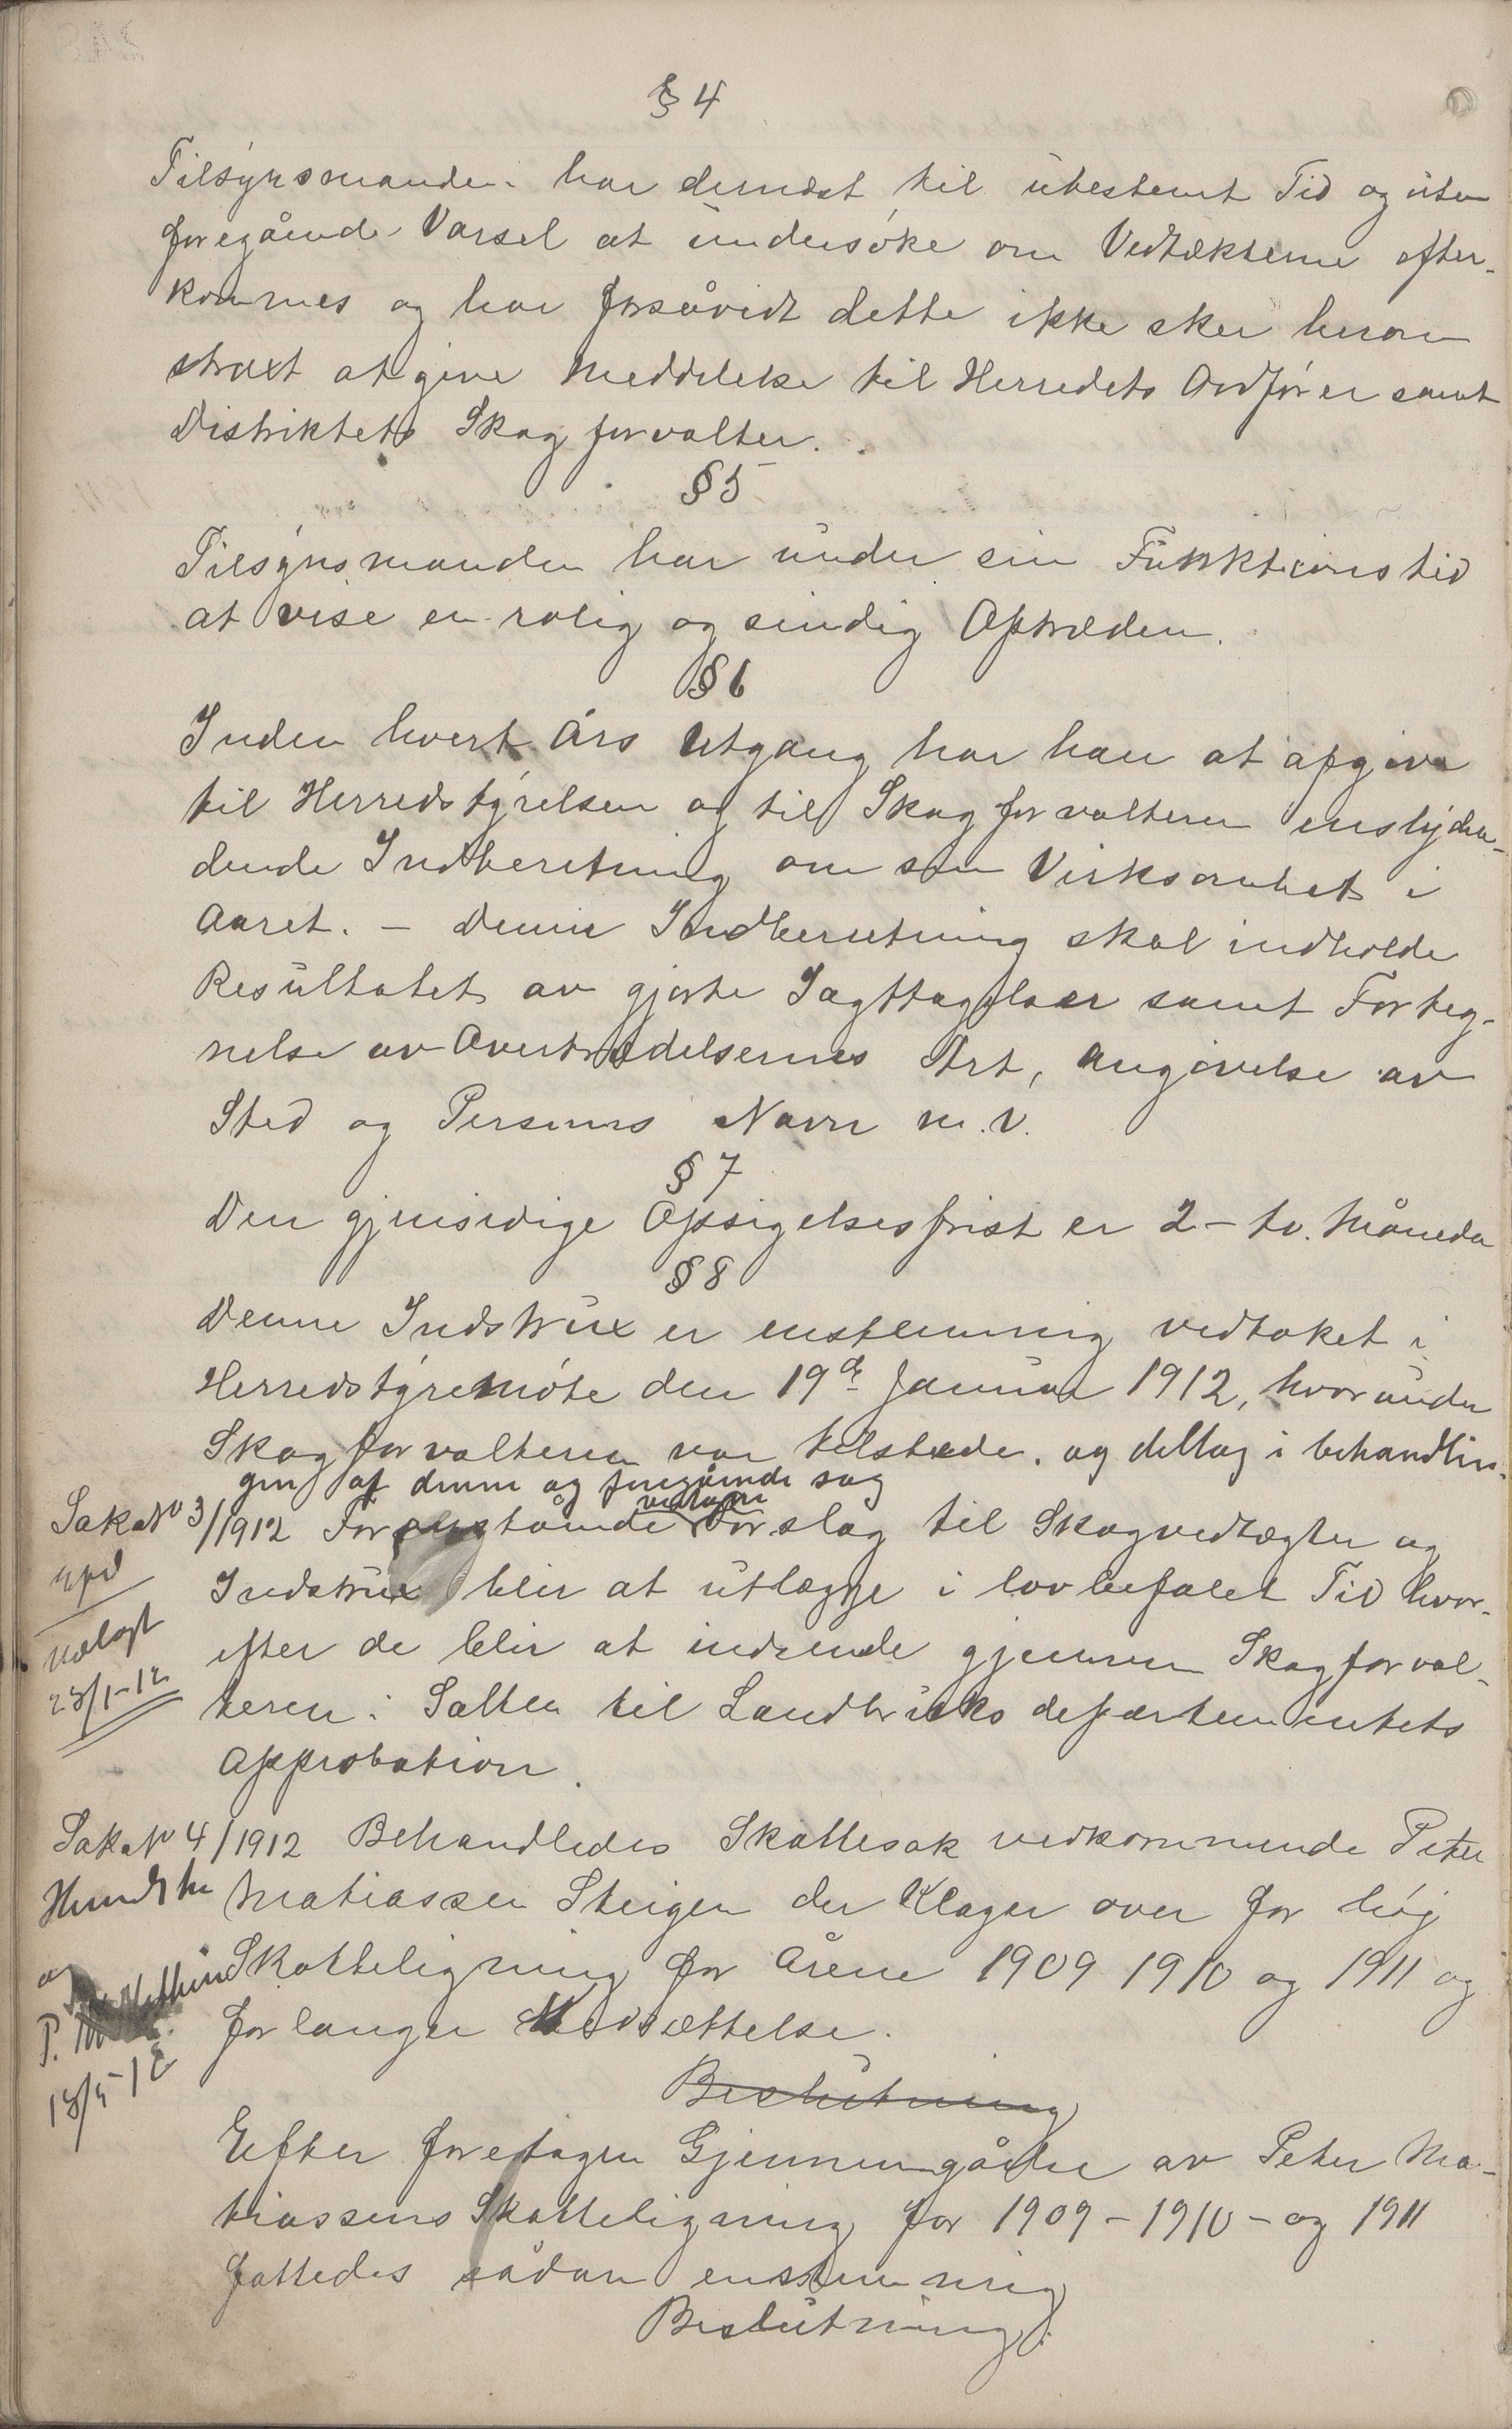 § 4
Tilsynsmanden har dernæst til ubestemt Tid og uten
foregående Varsel at undersøke om Vedtækterne efter-
kommes og har forsåvidt dette ikke sker herom
straxt at give Meddelelse til Herredets Ordfører samt
Distriktets Skogforvalter.
§ 5
Tilsynsmanden har under sin Funktionstid
at vise en rolig og sindig Optræden.
§ 6
Inden hvert Års Utgang har han at afgive
til Herredstyrelsen og til Skogforvalteren enslyden-
dende Indberetning om sin Virksomhet i
Aaret. - Denne Indberetning skal indholde
Resultatet av gjorte Iagttagelser samt Forteg-
nelse av Overtrædelsernes Art, Angivelse av
Sted og Persons Navn m.v.
§ 7
Den gjensidige Opsigelsesfrist er 2 - to. Måneder
§ 8
Denne Indstrux er enstemmig vedtaket i
Herredstyremøte den 19de Januar 1912, hvorunder
Skogforvalteren var tilstede. og deltog i behandlin-
gen af denne og foregående sag
Sak No 3/1912 Forestående vedtagne Forslag til Skogvedtægter og
Exp
Indstrux blir at utlægge i lovbefalet Tid hvor-
Utlagt
efter de blir at indsende gjennem Skogforval-
23/1-12
teren i Salten til Landbruksdepartementets
Approbation.
Sak No 4/1912 Behandledes Skattesak vedkommende Peter
Matiassen Steigen der Klager over for høj
og
Skatteligning for Årene 1909 1910 og 1911 og
P.
forlanger Nedsættelse.
Beslutning
Efter foretagen Gjennemgåelse av Peter Ma-
tiassens Skatteligning for 1909 - 1910 - og 1911
fattedes sådan enstemmig
Beslutning: